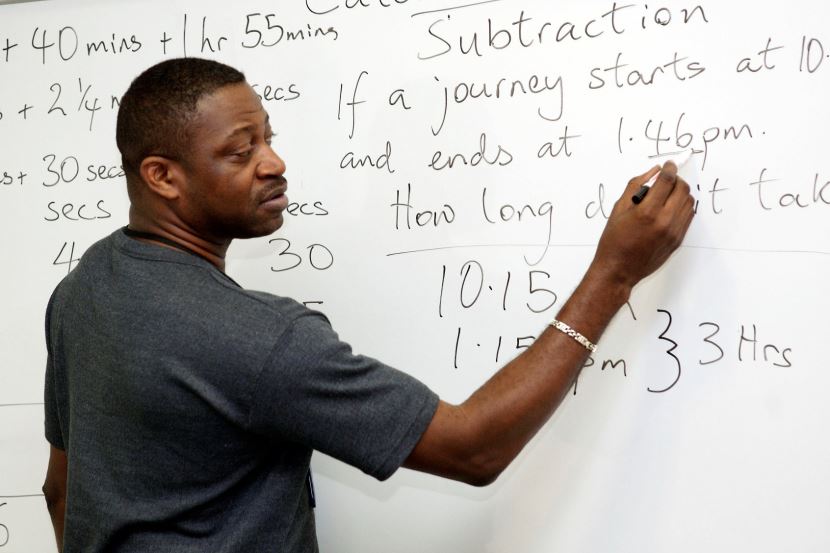 + 40 mins + 1 hr 55 mins
+ 2 1/4 secs
+ 30 secs
secs
30
Subtraction
If a journey starts at 10.
and ends at 1.46pm.
How long it
10.15
1.15 pm } 3 Hrs